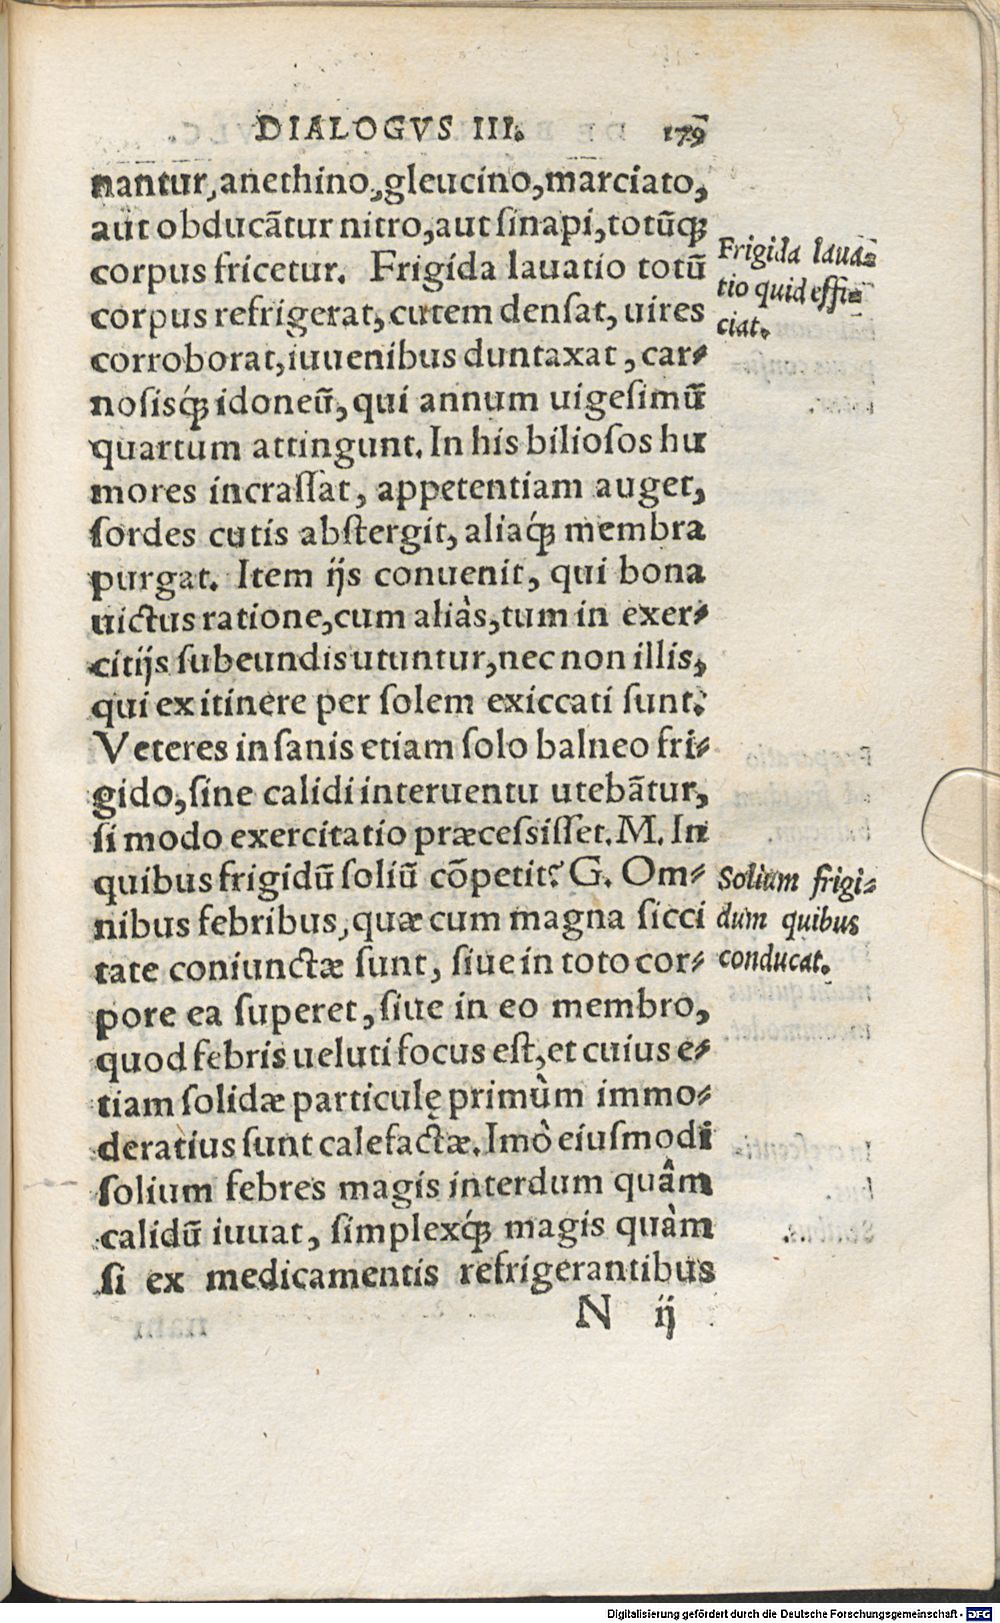 DIALOGVS III. 179
nantur, anethino, gleucino, marciato,
aut obducãtur nitro, aut sinapi, totũq́;
corpus fricetur. Frigida lauatio totũ
corpus refrigerat, cutem densat, uires
corroborat, iuuenibus duntaxat, car-
nosisq́; idoneũ, qui annum uigesimũ
quartum attingunt. In his biliosos hu
mores incrassat, appetentiam auget,
sordes cutis abstergit, aliaq́; membra
purgat. Item ijs conuenit, qui bona
uictus ratione, cum aliàs, tum in exer-
citijs subeundis utuntur, nec non illis,
qui ex itinere per solem exiccati sunt.
Veteres in sanis etiam solo balneo fri-
gido, sine calidi interuentu utebãtur,
si modo exercitatio præcessisset. M. In
quibus frigidũ soliũ cõpetit? G. Om-
nibus febribus, quæ cum magna sicci
tate coniunctæ sunt, siue in toto cor-
pore ea superet, siue in eo membro,
quod febris ueluti focus est, et cuius e-
tiam solidæ particulę primùm immo-
deratius sunt calefactæ. Imò eiusmodi
solium febres magis interdum quâm
calidũ iuuat, simplexq́; magis quàm
si ex medicamentis refrigerantibus
N ij
Frigida laua-
tio quid effi-
ciat.
Solium frigi-
dum quibus
conducat.
Digitalisierung gefördert durch die Deutsche Forschungsgemeinschaft - DFG